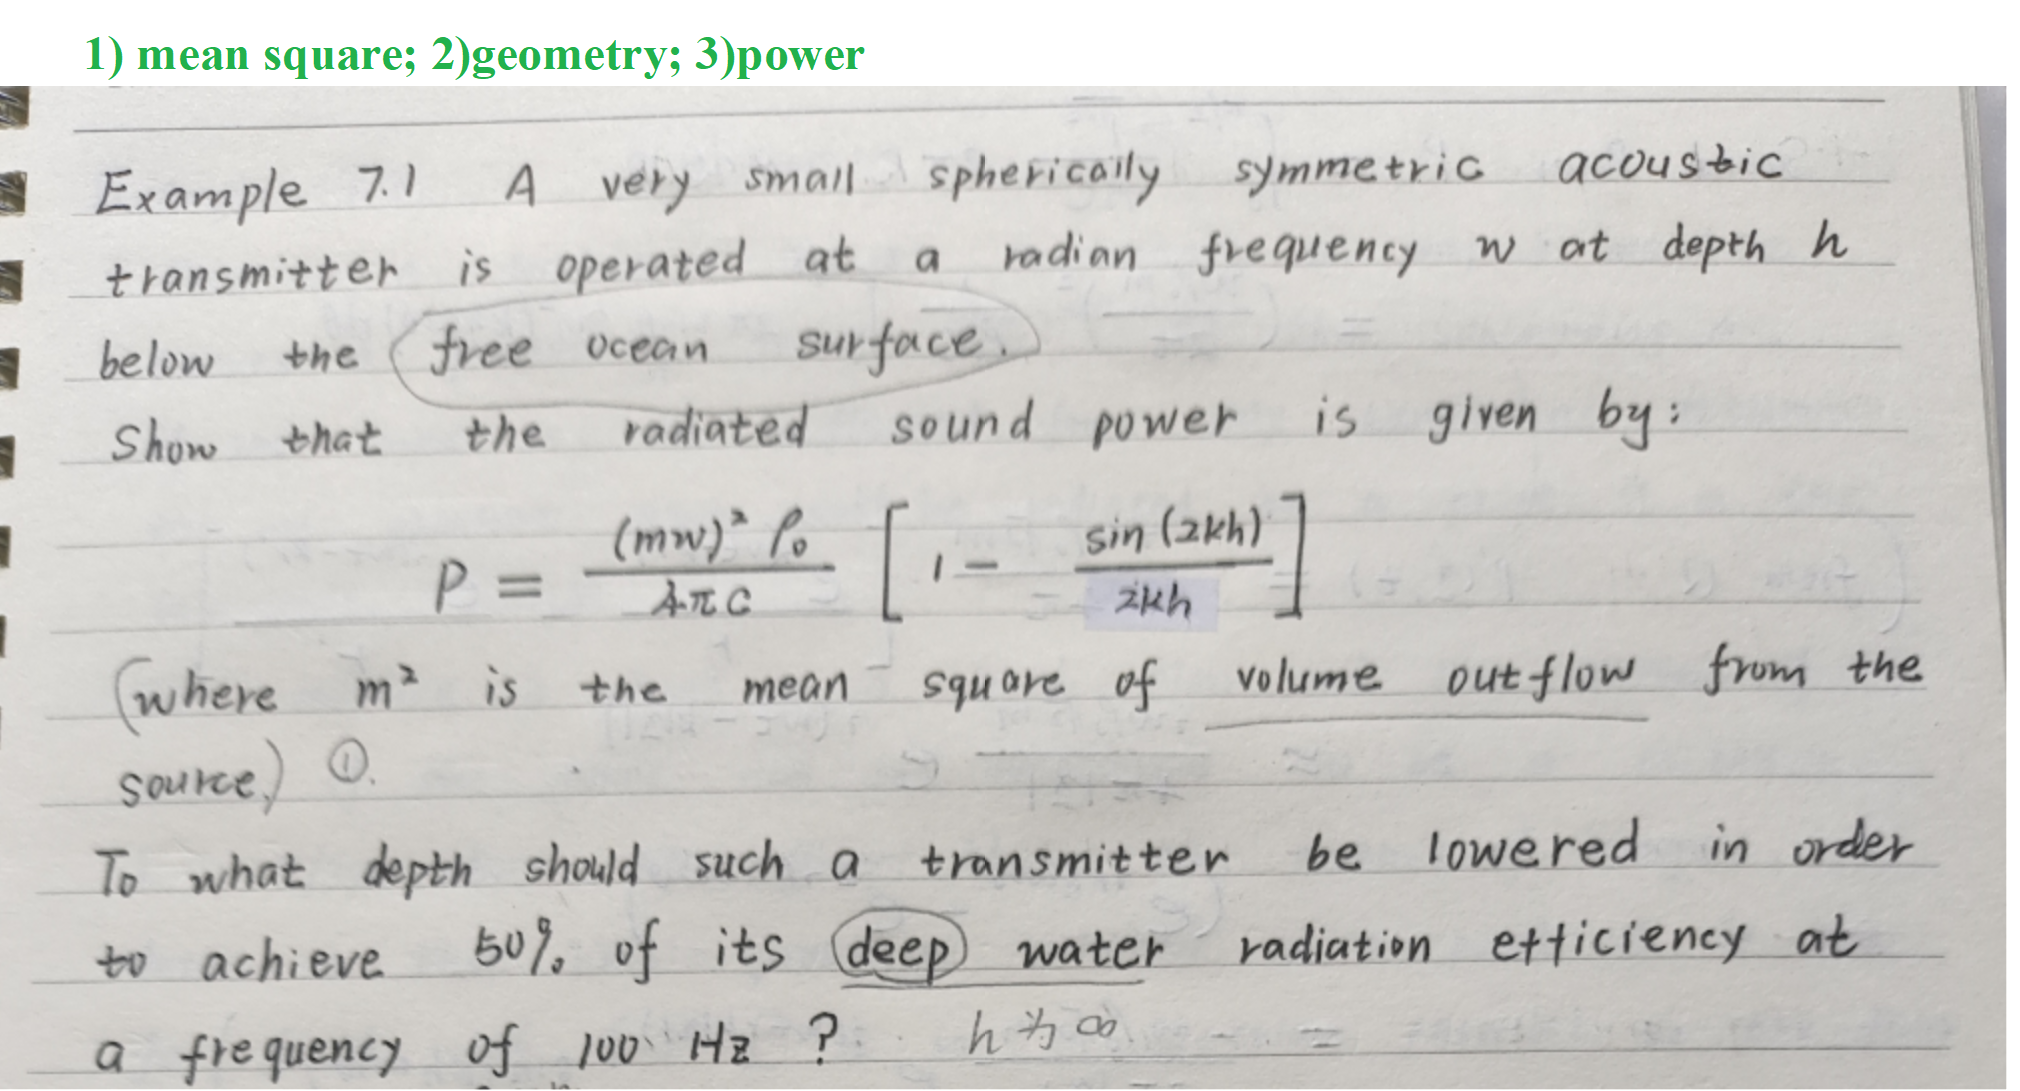 1) mean square; 2)geometry; 3)power
Example 7.1 A very small spherically symmetric acoustic
transmitter is operated at a radian frequency w at depth h
below the free ocean surface.
Show that the radiated sound power is given by:
P = (mw)² ρ₀ / 4πC [ 1 - sin(2kh) / 2kh ]
(where m² is the mean square of volume outflow from the
source.) ①.
To what depth should such a transmitter be lowered in order
to achieve 50% of its deep water radiation efficiency at
a frequency of 100 Hz ? h 为 ∞